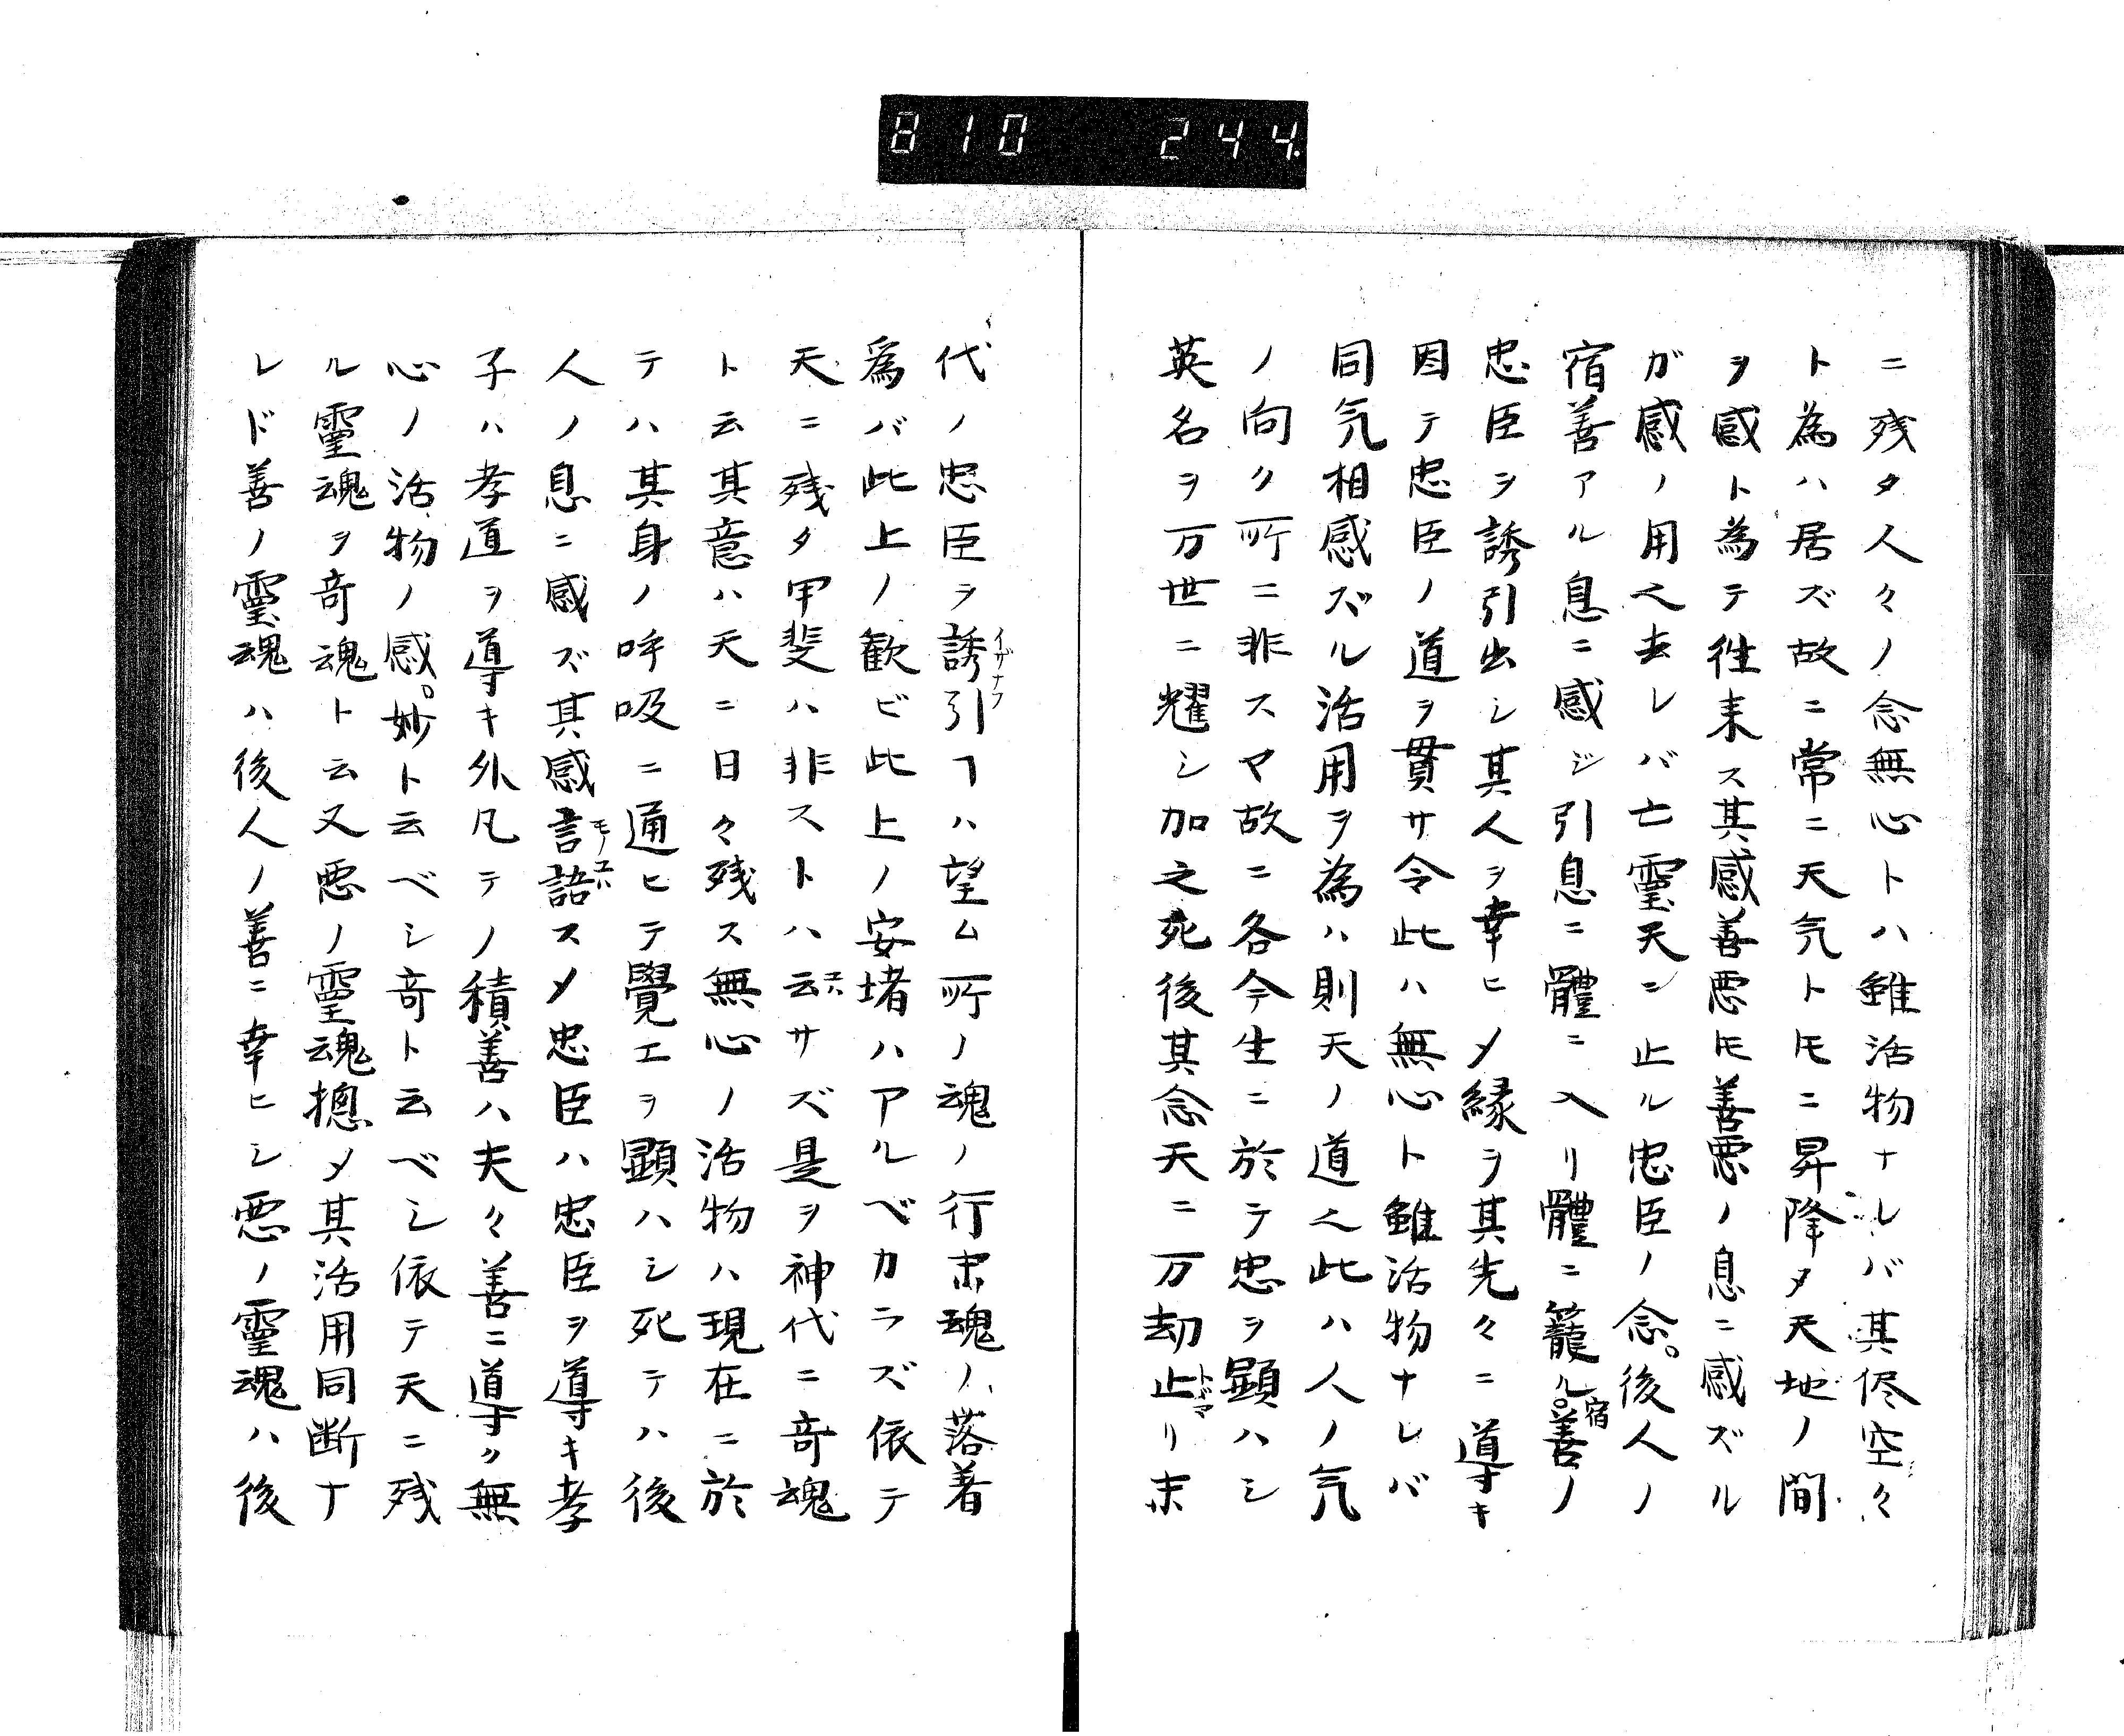 810 244.
ニ残タ人々ノ念無心トハ雖活物ナレバ其侭空々
ト為ハ居ズ故ニ常ニ天気トモニ昇降タ天地ノ間
ヲ感ト為テ往来ス其感善悪モ善悪ノ息ニ感ズル
ガ感ノ用也去レバ亡霊天ニ止ル忠臣ノ念。後人ノ
宿善アル息ニ感ジ引息ニ體ニ入リ體ニ籠ル。宿善ノ
忠臣ヲ誘引出シ其人ヲ幸ヒメ縁ヲ其先々ニ導キ
因テ忠臣ノ道ヲ貫サ令此ハ無心ト雖活物ナレバ
同気相感ズル活用ヲ為ハ則天ノ道也此ハ人ノ気
ノ向ク所ニ非スヤ故ニ各今生ニ於テ忠ヲ顕ハシ
英名ヲ万世ニ耀シ加之死後其念天ニ万劫止トヾマリ末
代ノ忠臣ヲ誘引イザナフヿハ望ム所ノ魂ノ行末魂ノ落着
為バ此上ノ歓ビ此上ノ安堵ハアルベカラズ依テ
天ニ残タ甲斐ハ非ストハ云エハサズ是ヲ神代ニ奇魂
ト云其意ハ天ニ日々残ス無心ノ活物ハ現在ニ於
テハ其身ノ呼吸ニ通ヒテ覺エヲ顕ハシ死テハ後
人ノ息ニ感ズ其感言語モノユハスメ忠臣ハ忠臣ヲ導キ孝
子ハ孝道ヲ導キ外凡テノ積善ハ夫々善ニ導ク無
心ノ活物ノ感。妙ト云ベシ奇ト云ベシ依テ天ニ残
ル霊魂ヲ奇魂ト云又悪ノ霊魂摠メ其活用同断ナ
レド善ノ霊魂ハ後人ノ善ニ幸ヒシ悪ノ霊魂ハ後